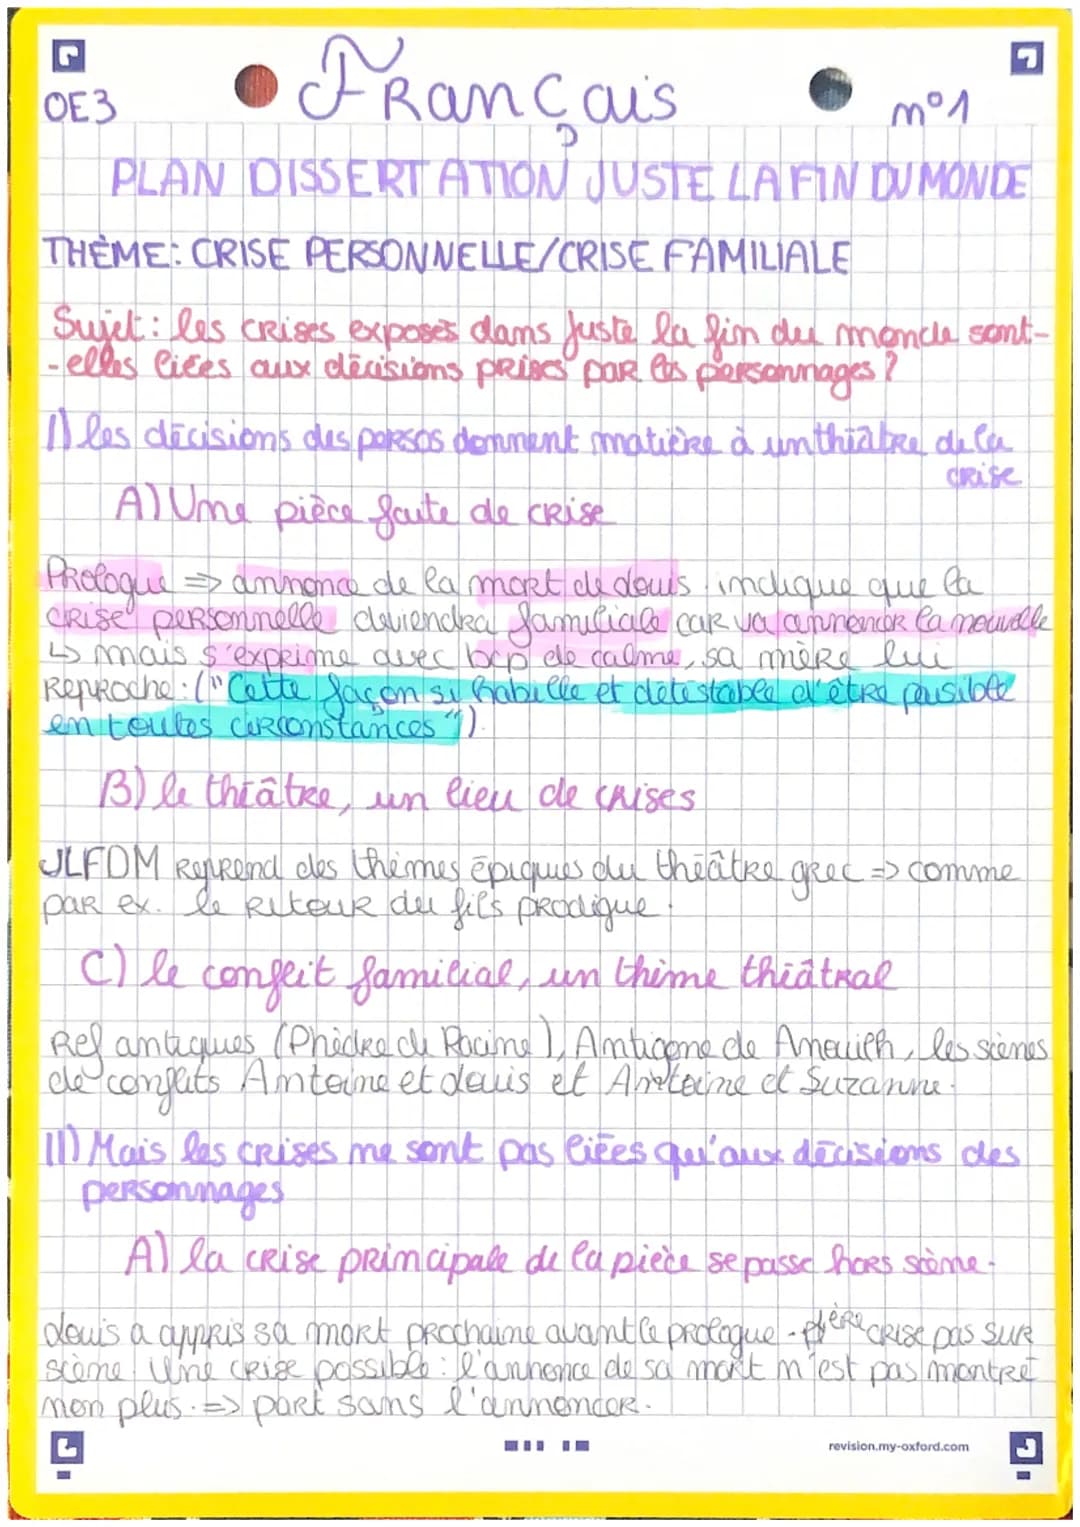 OE3
Français
n°1
PLAN DISSERTATION JUSTE LA FIN DU MONDE
THÈME: CRISE PERSONNELLE/CRISE FAMILIALE
Sujet : les crises exposés dans Juste la fin du monde sont-
-elles liées aux décisions prises par les personnages ?
I) les décisions des persos donnent matière à un théâtre de la
crise
A) Une pièce faite de crise
Prologue => annonce de la mort de Louis. indique que la
crise personnelle deviendra familiale car va annoncer la nouvelle
↳ mais s'exprime avec bcp de calme, sa mère lui
Reproche: ("Cette façon si habille et détestable d'être paisible
en toutes circonstances").
B) le théâtre, un lieu de crises
JLFDM Reprend des thèmes épiques du théâtre grec => comme
par ex. le Retour du fils prodigue.
C) le conflit familial, un thème théâtral
Ref antiques (Phèdre de Racine), Antigone de Anouilh, les scènes
de conflits Antoine et Louis et Antoine et Suzanne.
II) Mais les crises ne sont pas liées qu'aux décisions des
personnages
A) la crise principale de la pièce se passe hors scène.
Louis a appris sa mort prochaine avant le prologue - 1ère crise pas sur
scène. Une crise possible : l'annonce de sa mort n'est pas montré
non plus. => part sans l'annoncer.
revision.my-oxford.com